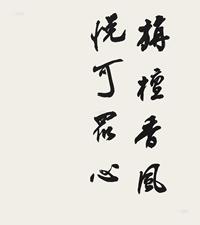 栴檀香風
悅可眾心